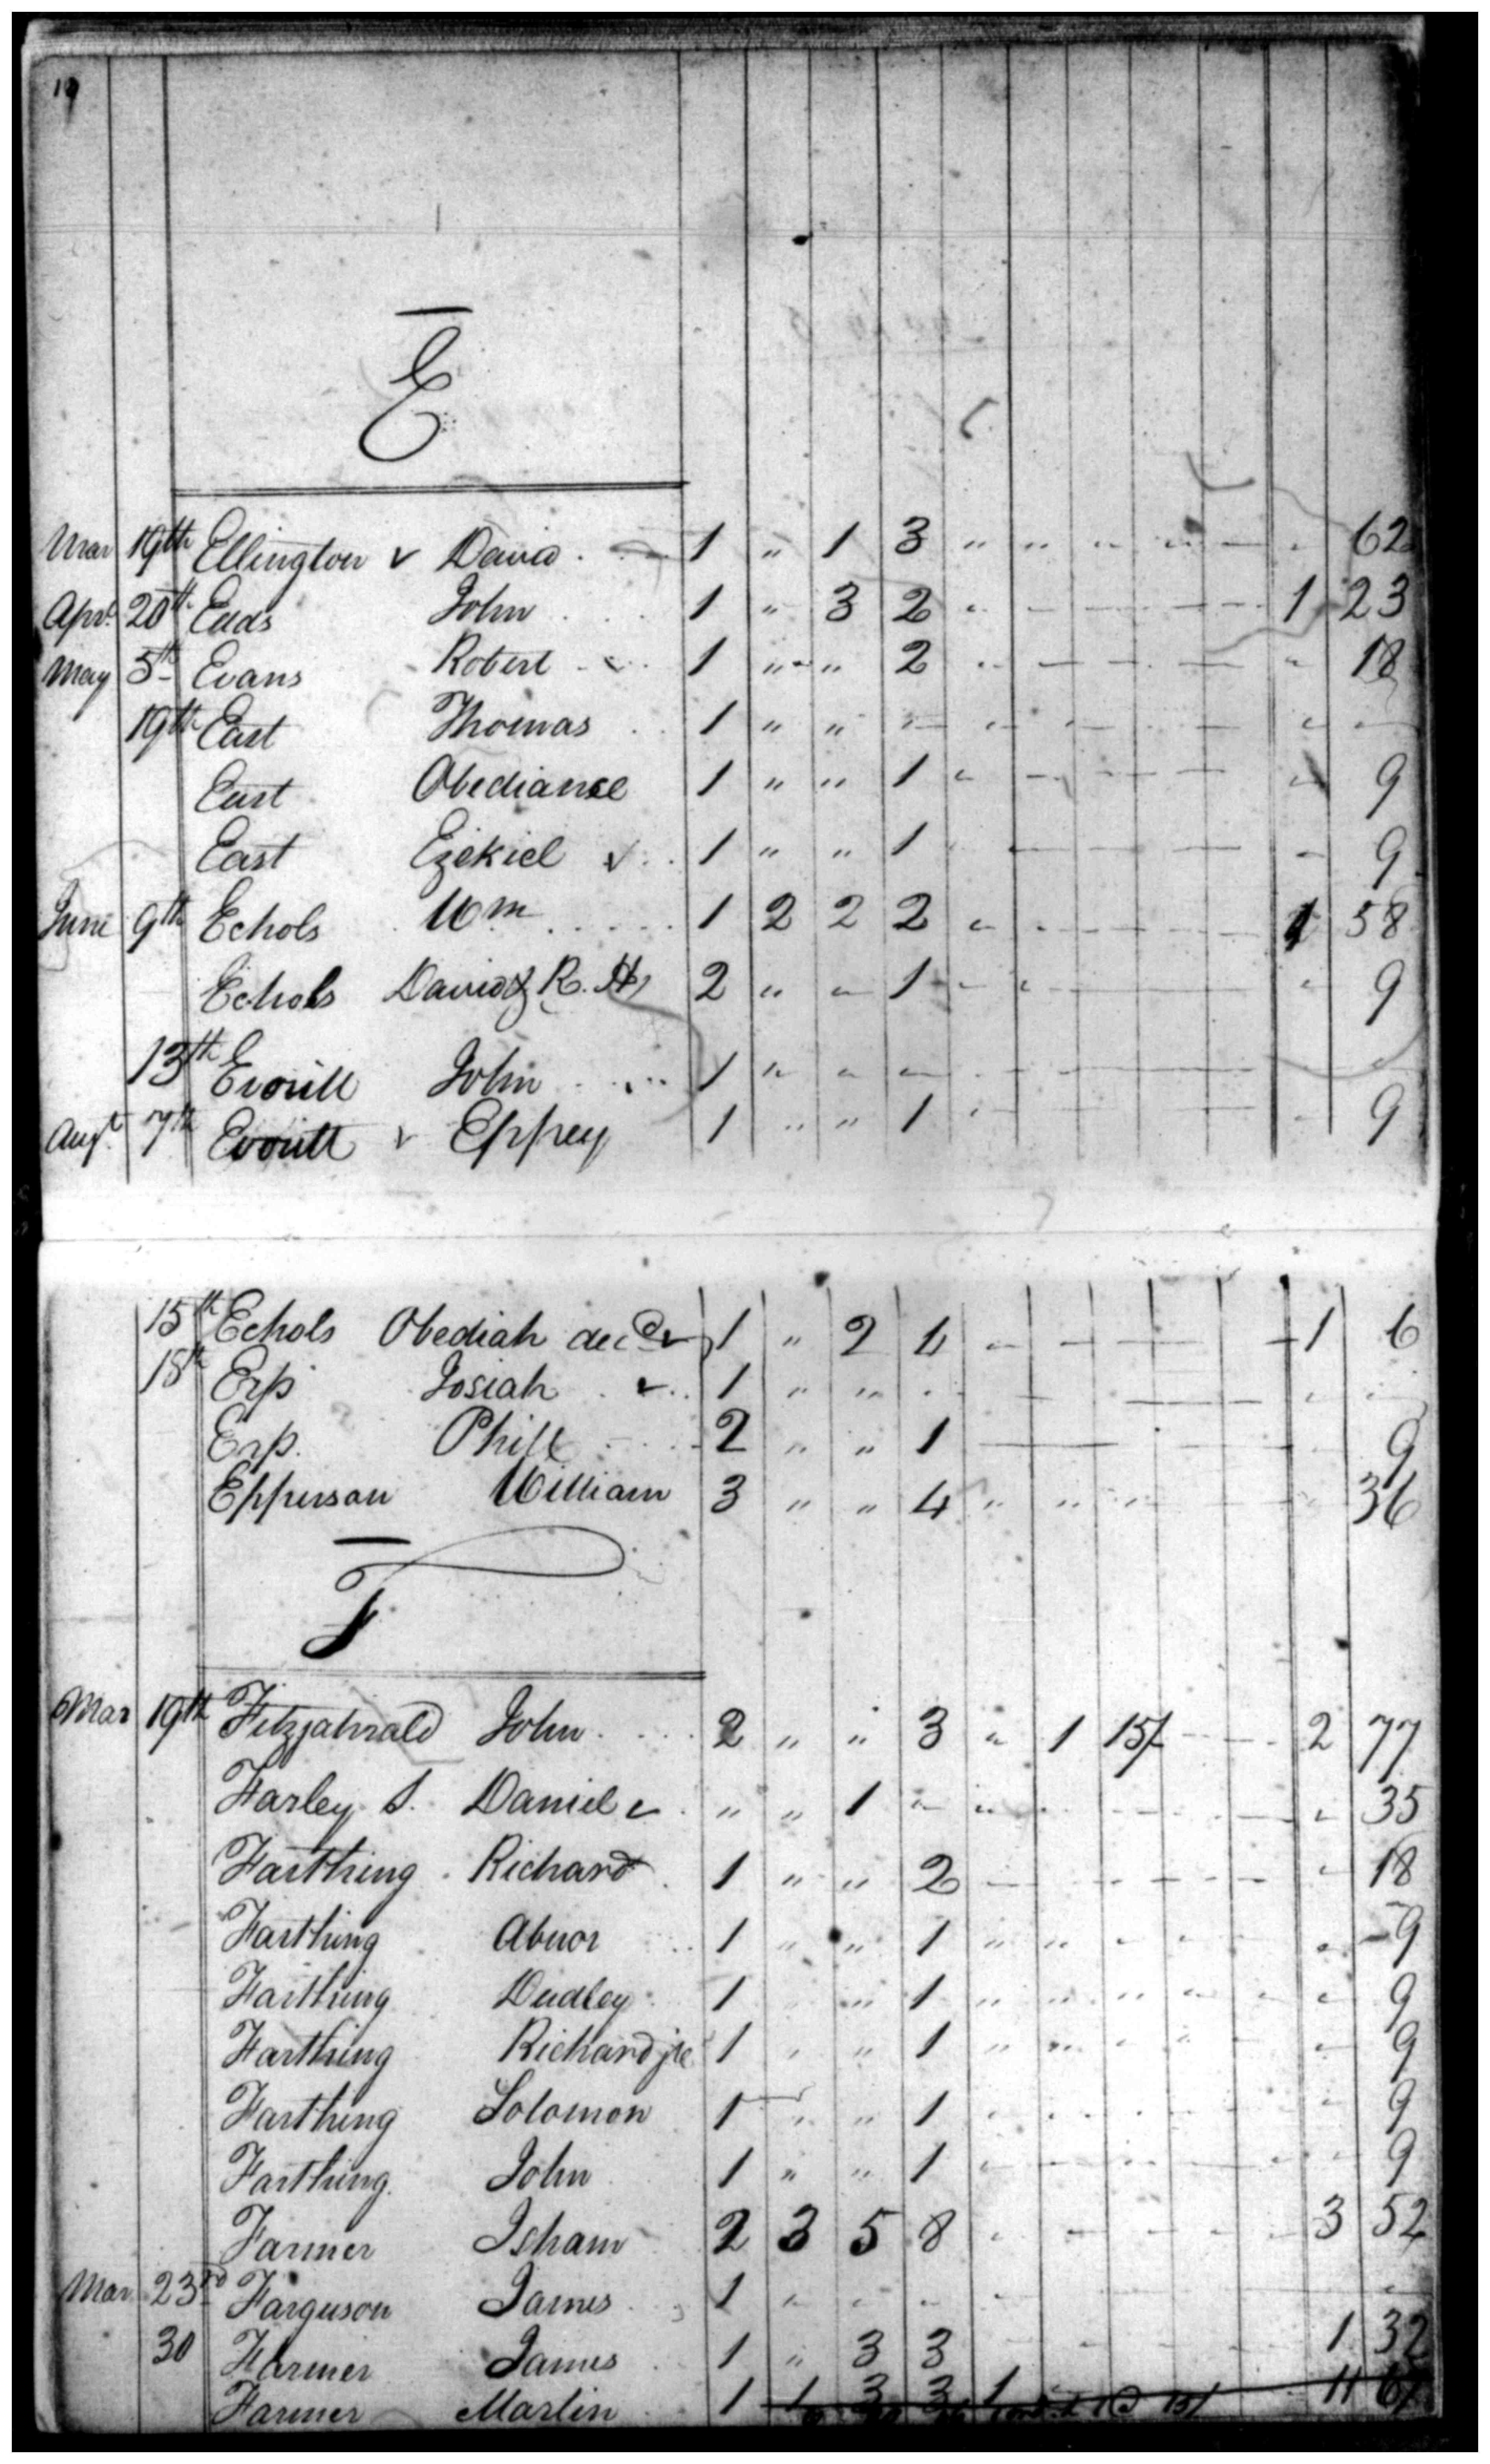 E
Mar 19th Ellington v David 1 " 1 3 " " " " - " 62
Apr. 20th Eads John 1 " 3 2 " - - - - 1 23
May 5th Evans Robert 1 " " 2 " - - - - " 18
19th East Thomas 1 " " " " - - - - " "
East Obediance 1 " " 1 " - - - - " 9
East Ezekiel v 1 " " 1 " - - - - - 9
June 9th Echols Wm 1 2 2 2 " - - - - 1 58
Echols David & R. H. 2 " " 1 " " - - - " 9
13th Evoritt John 1 " " " - - - - - "
Augt 7th Evoritt v Eppey 1 " " 1 " - - - - " 9
15th Echols Obediah decd v 1 " 2 4 " - - - - 1 6
18th Erp Josiah v 1 " " " - - - - - " "
Erp. Phill 2 " " 1 - - - - - " 9
Epperson William 3 " " 4 " " " - - " 36
F
Mar 19th Fitzjahrald John 2 " " 3 " 1 15/ - - 2 77
Farley S. Daniel v " " 1 " " - - - - " 35
Farthing Richard 1 " " 2 - - - - - " 18
Farthing Abnor 1 " " 1 " " " " - " 9
Farthing Dudley 1 " " 1 " " " " " " 9
Farthing Richard jr 1 " " 1 " " " " - " 9
Farthing Solomon 1 " " 1 " - - - - " 9
Farthing John 1 " " 1 " - - - - " 9
Farmer Isham 2 3 5 8 " - - - - 3 52
Mar 23rd Farguson James 1 " " " " - - - - "
30 Farmer James 1 " 3 3 - - - - - 1 32
Farmer Martin 1 1 3 3 1